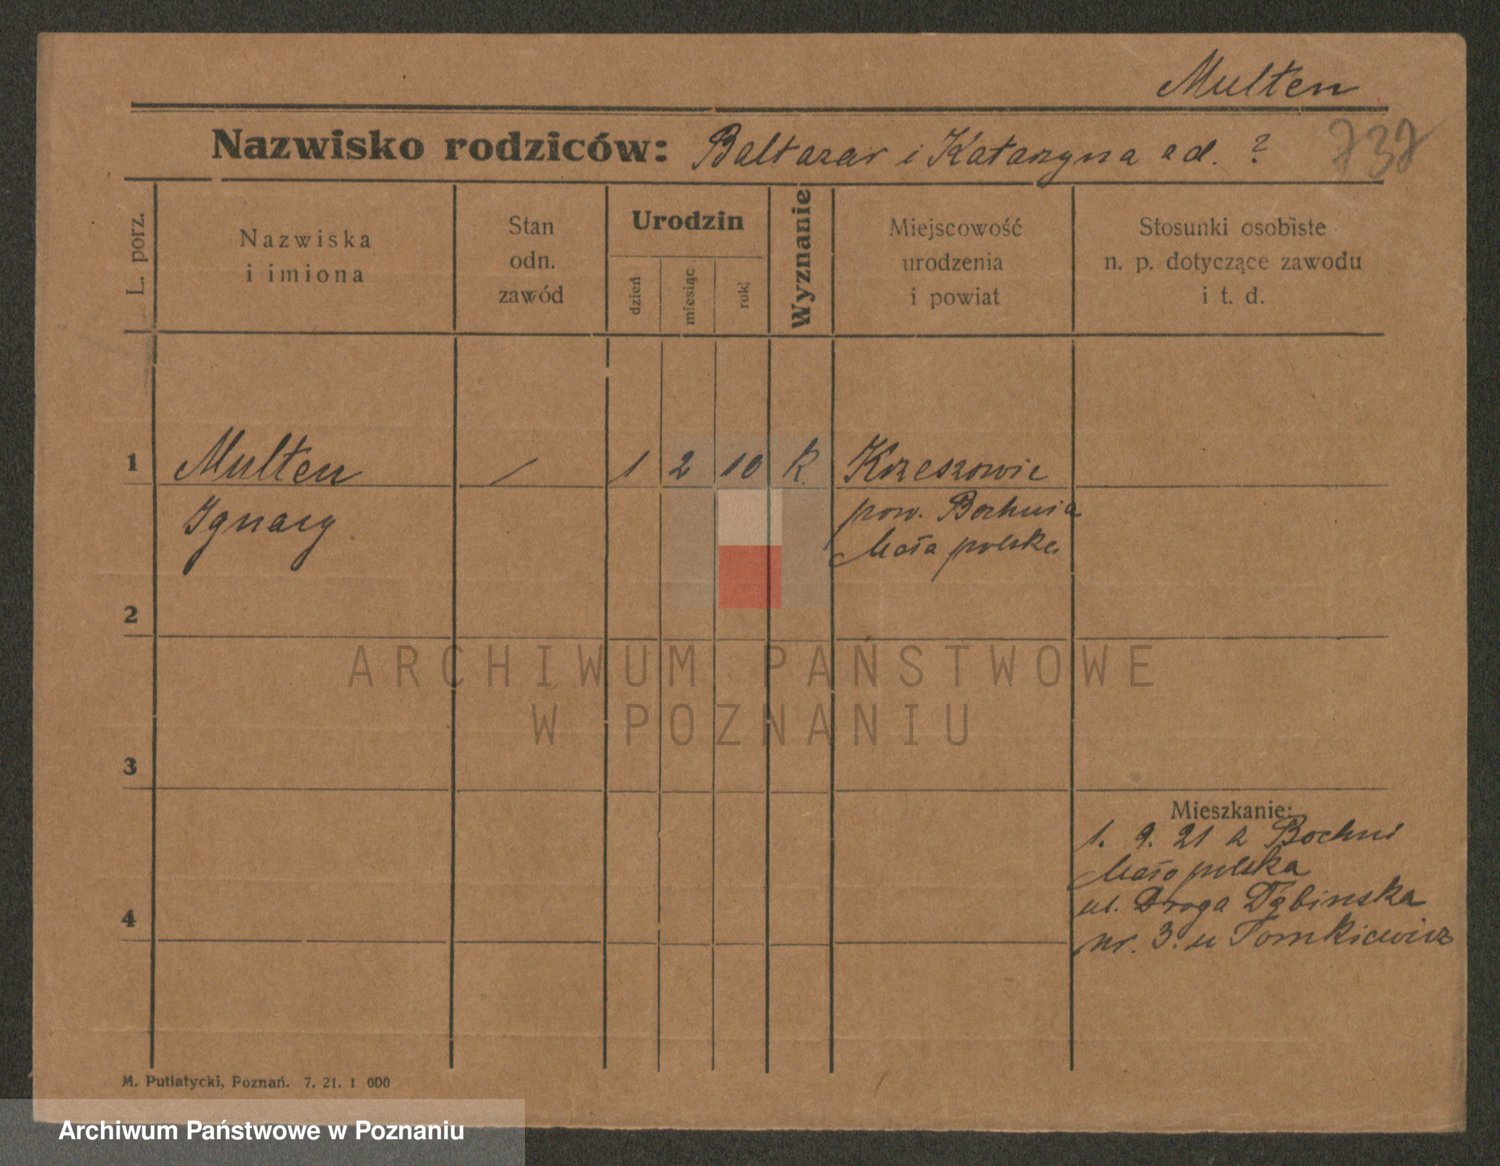 Multen
Nazwisko rodziców: Baltazar i Katarzyna ad. ?
737
L. porz.
Nazwiska
i imiona
Stan
odn.
zawód
Urodzin
dzień
miesiąc
rok
Wyznanie
Miejscowość
urodzenia
i powiat
Stosunki osobiste
n. p. dotyczące zawodu
i t. d.
1 Multen / 1 2 10 k. Krzeszowic
Ignacy pow. Bochnia
Mała polska
2
ARCHIWUM PAŃSTWOWE
W POZNANIU
3
Mieszkanie:
1. 9. 21 z Bochni
Mało polska
ul. Droga Dąbinska
4 nr. 3. u Tomkiewicz
M. Putiatycki, Poznań. 7. 21. 1 000
Archiwum Państwowe w Poznaniu